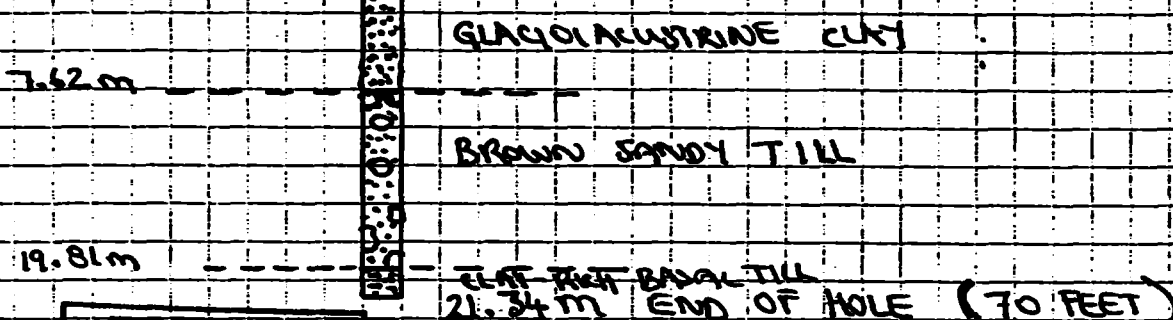 GLACIOLACUSTRINE CLAY
7.62 m
BROWN SANDY TILL
19.81m
CLAY-RICH BASAL TILL
21.34 m END OF HOLE (70 FEET)